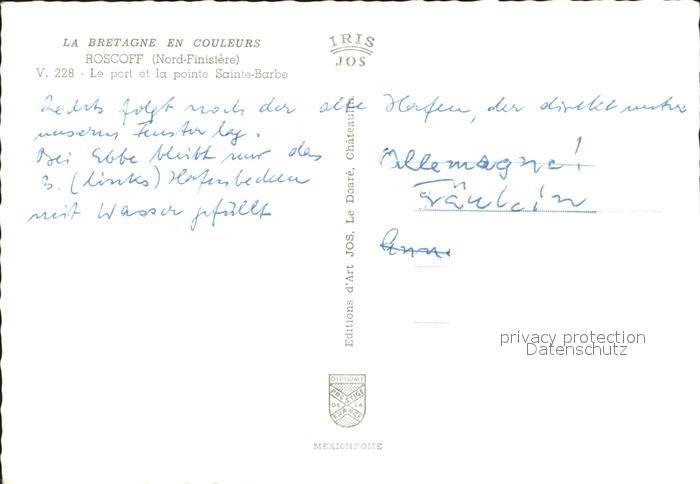 LA BRETAGNE EN COULEURS
ROSCOFF (Nord-Finistère)
V. 228 - Le port et la pointe Sainte-Barbe
IRIS
JOS
Rechts folgt noch der alte Hafen, der direkt unter
unserm Fenster lag.
Bei Ebbe bleibt nur das
3. (links) Hafenbecken
mit Wasser gefüllt
Allemagne!
Fräulein
Anna
Editions d'Art JOS, Le Doaré, Châteaulin
privacy protection
Datenschutz
DIPLOME
PRESTIGE
DE LA
FRANCE
MEXICHROME